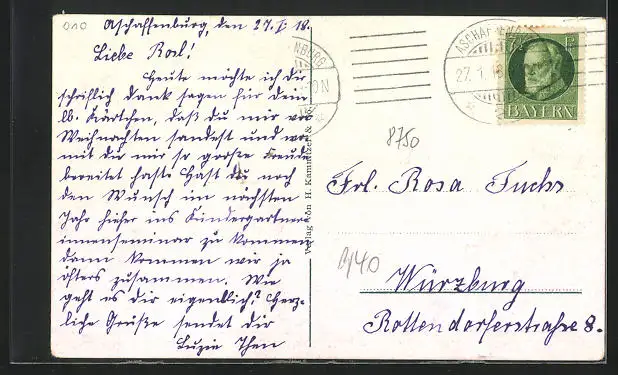 010
Aschaffenburg, den 27. I. 18.
Liebe Rosl!
Heute möchte ich dir
schriftlich dank sagen für dein
lb. Kärtchen, daß du mir vor
Weihnachten sandest und wo
mit du mir so große Freude
bereitet hast. Hast du noch
den Wunsch im nächsten
Jahr hieher ins Kindergartner
innenseminar zu kommen
dann kommen wir ja
öfters zusammen. Wie
geht es dir eigentlich? Herz-
liche Grüße sendet dir
Luzie Then
Verlag von H. Kamnitzer &
NBURG
ASCHAFFENBURG
27. 1. 18
BAYERN
8750
Frl. Rosa Fuchs
Würzburg
Rottendorferstraße 8.